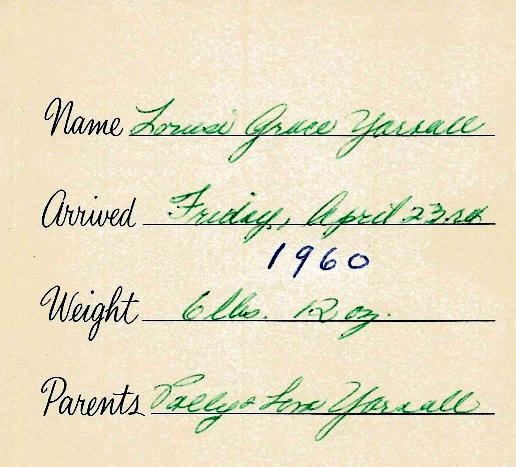 Name Louise Grace Yarnall
Arrived Friday, April 23rd
1960
Weight 6 lbs. 12 oz.
Parents & Yarnall